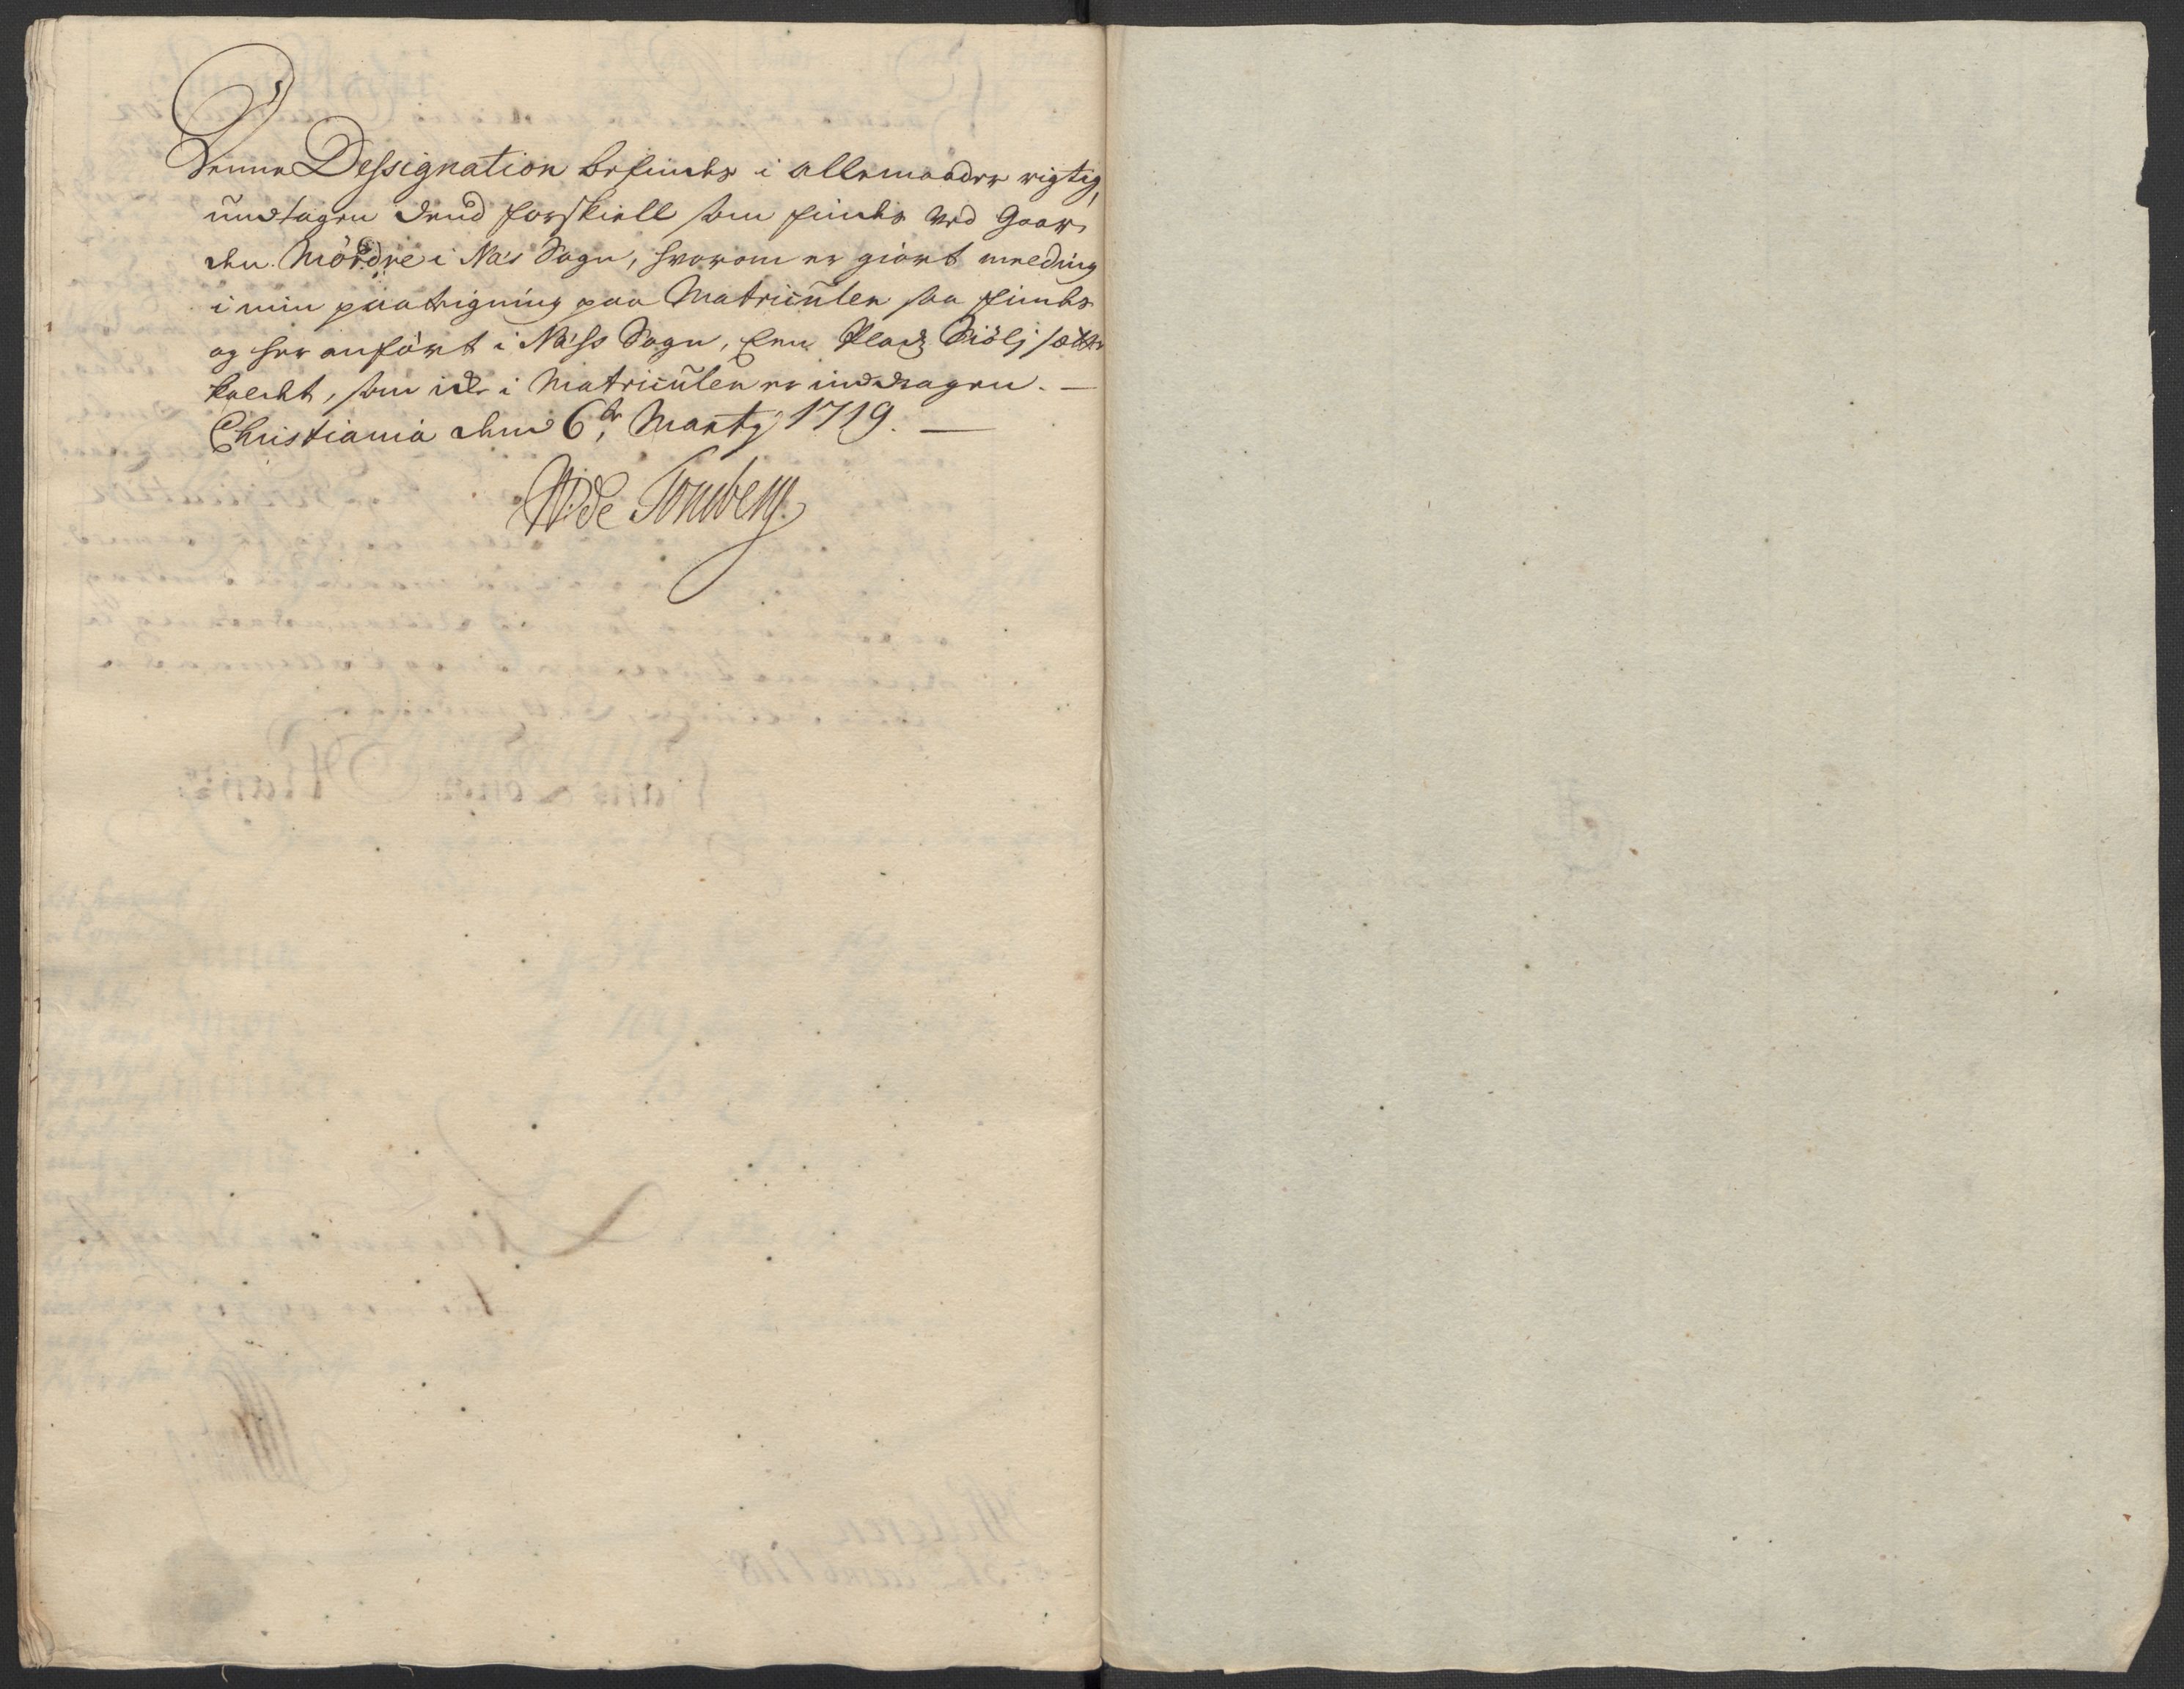 Denne Dessignation befindes i allemaader rigtig,
undtagen dend forskiell som findes ved Gaar-
den Mördre i Næs Sogn, hvorom er giort melding
i min paategning paa Matriculen saa findes
og her anfört i Næss Sogn, Een Plads Siölj sætter
kaldet, som icke i Matriculen er inddragen. —
Christiania dend 6te Marty 1719. —
W: de Tonsberg.